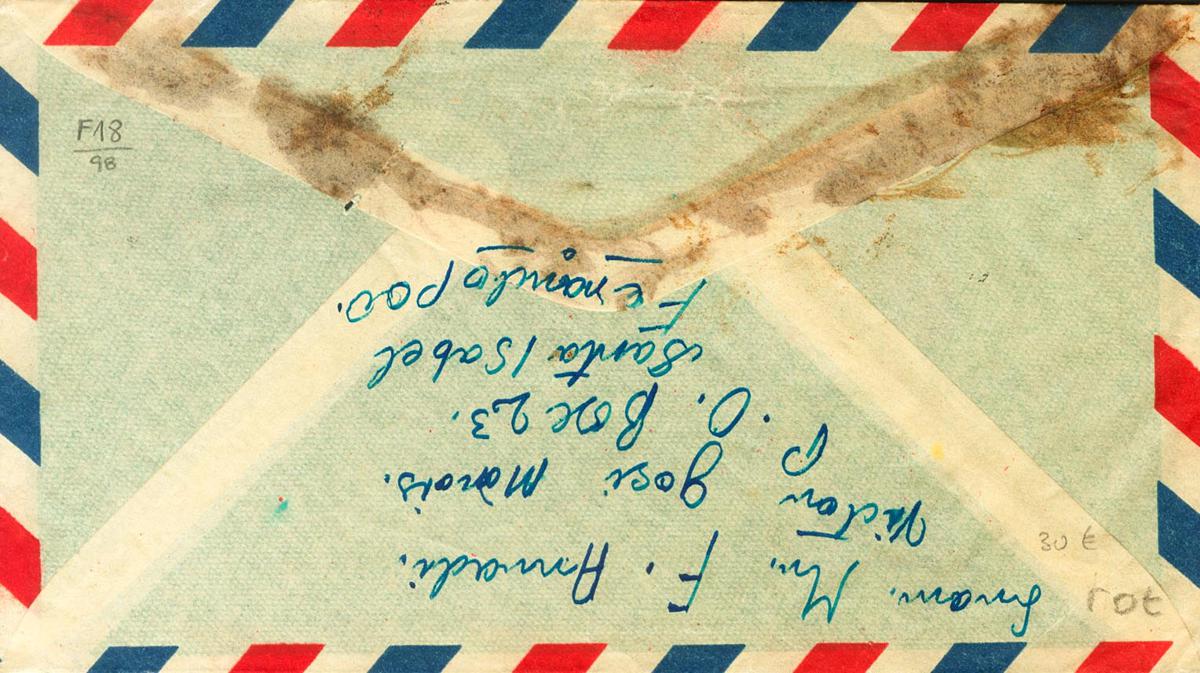 From. Mr. F. Amadi.
Victor José Marois.
P. O. Box 23.
Santa Isabel
Fernando Poo.
F18
98
30 €
rot